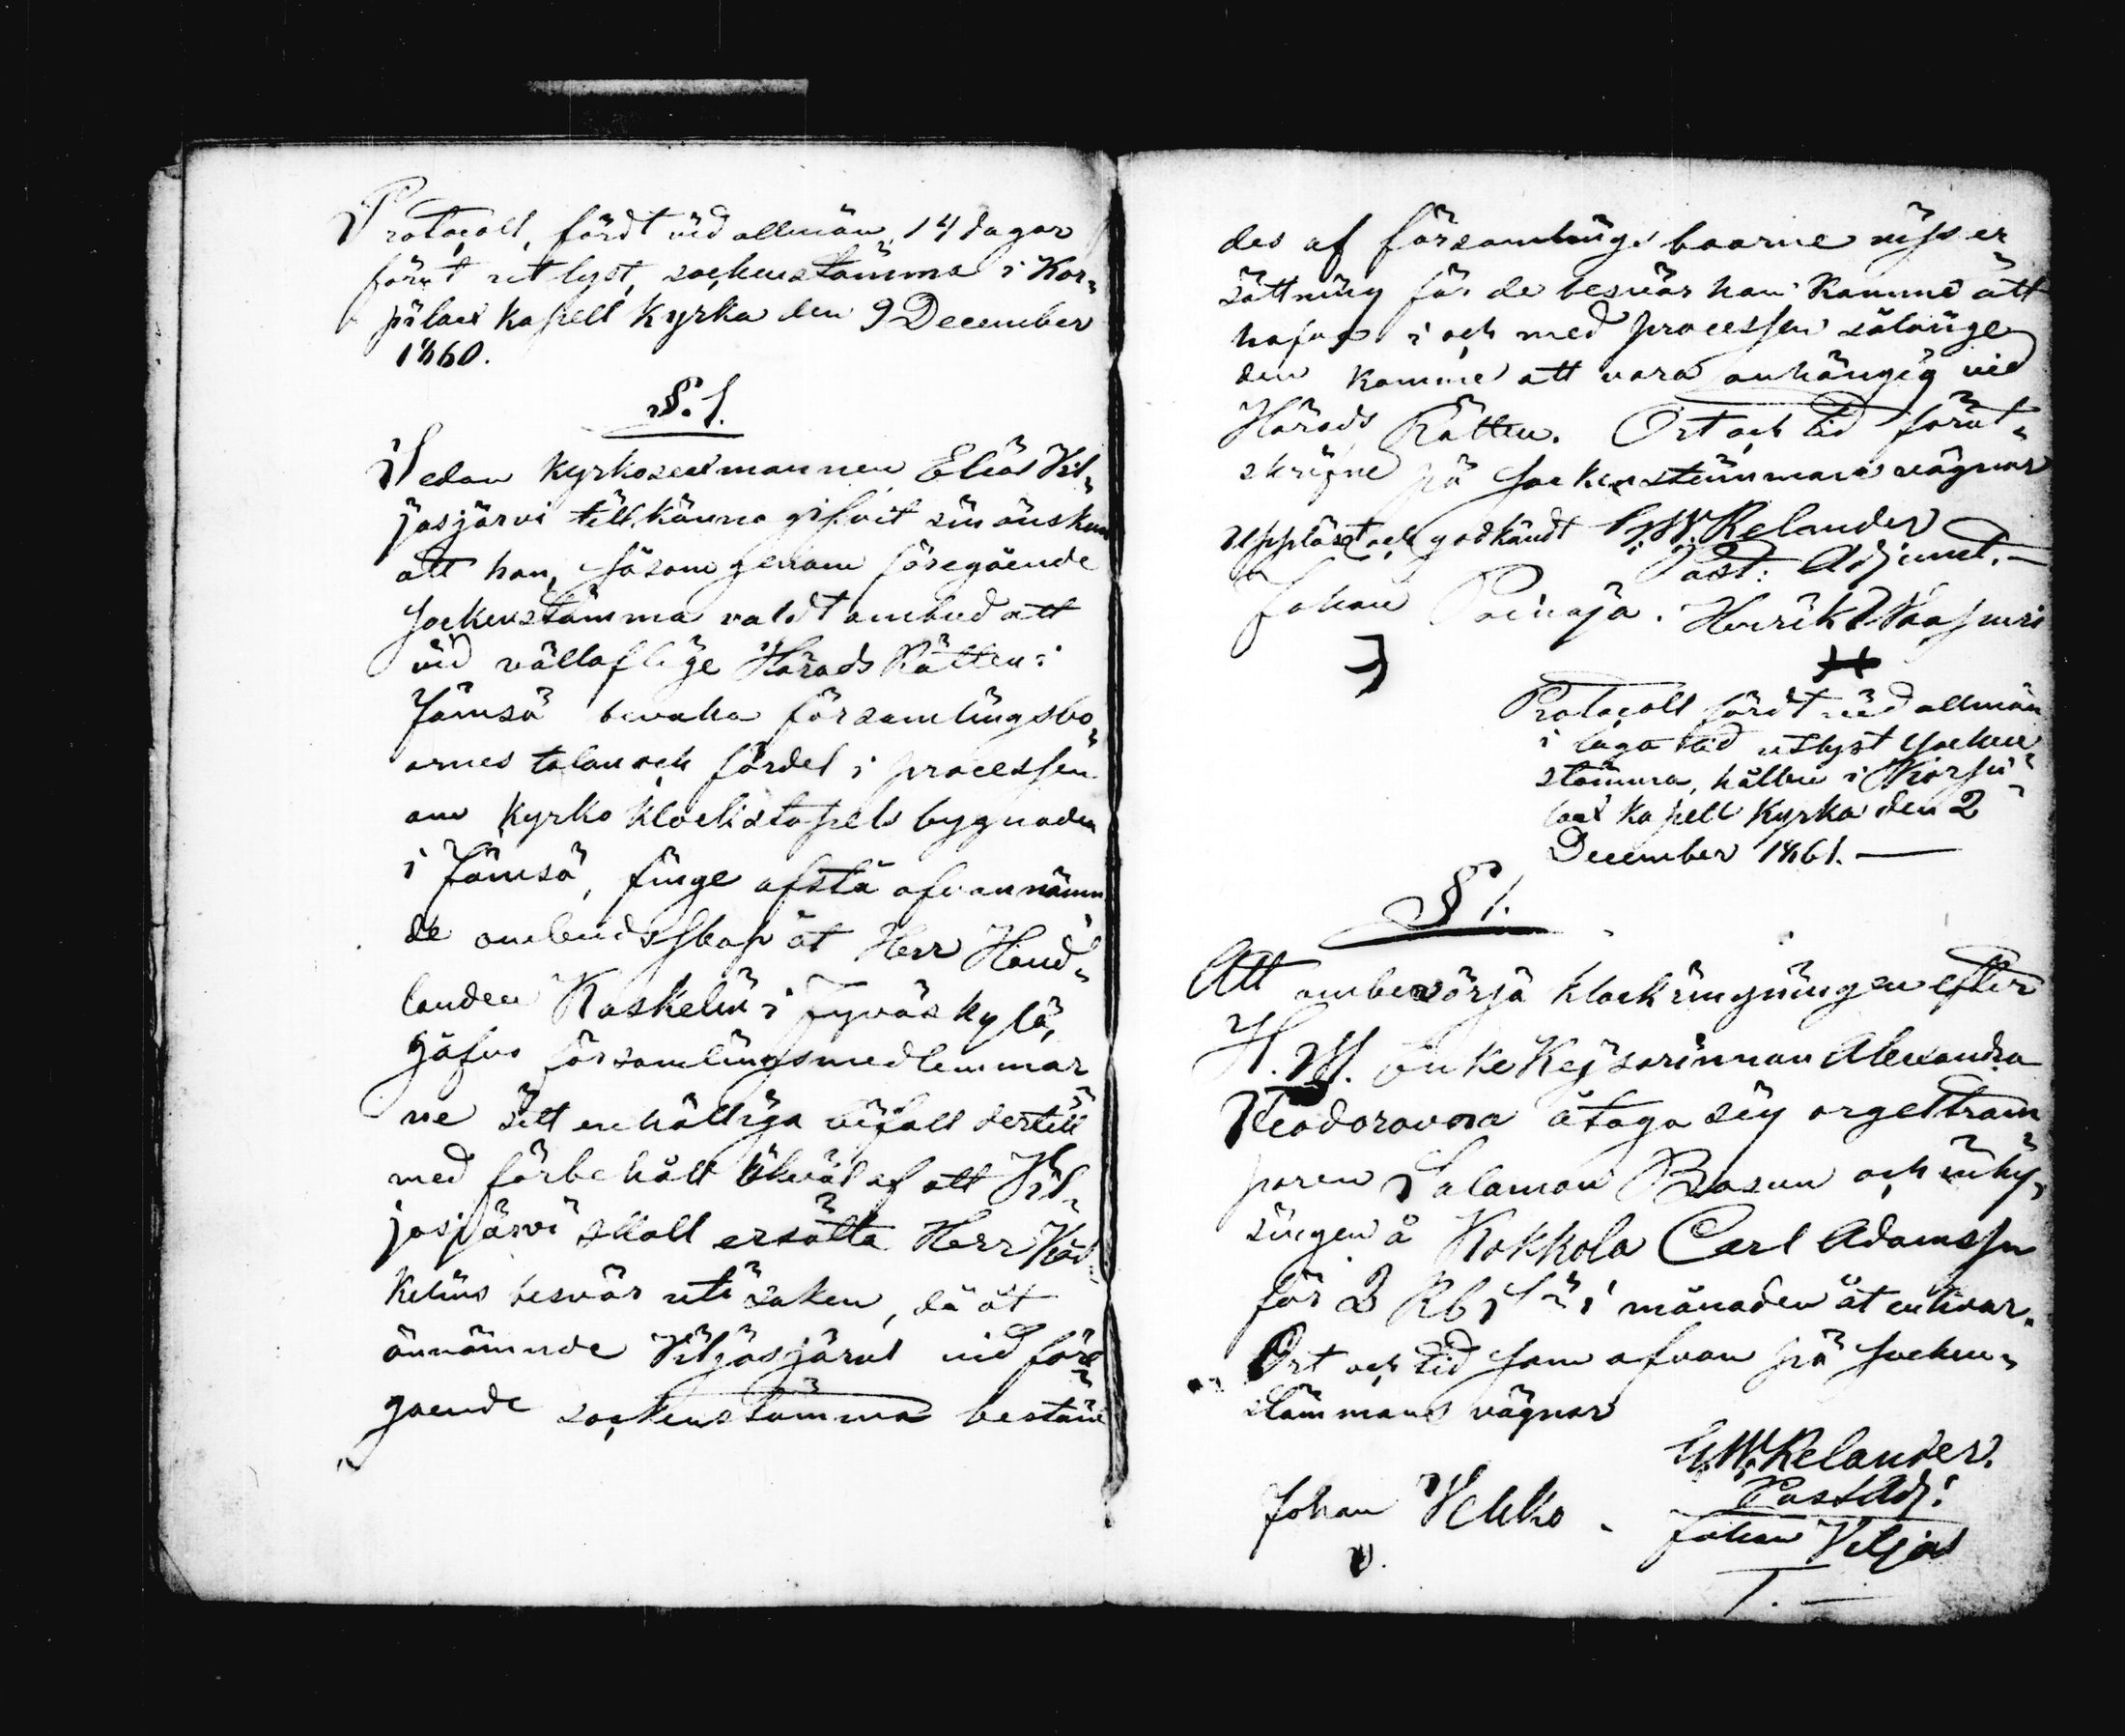 Protocoll, fördt vid allmän, 14 dagar
förut utlyst, sockenstämma i Kor„
pilax kapell kyrka den 9 December
1860.
§. 1.
Sedan kyrkosexmannen Elias Vil„
jasjärvi tillkänna gifvit sin önskan
att han, såsom genom föregående
sockenstämma valdt ombud att
vid välloflige Härads Rätten i
Jämsä bevaka församlingsbo„
arnes talan och fördel i processen
om kyrko klockstapels bygnaden
i Jämsä, finge afstå ofvannämn
de ombudsskap åt Herr Hand„
landen Kaskelin i Jyväskylä,
gåfvo församlingsmedlemmar
ne sitt enhälliga bifall dertill
med förbehåll likväl af att Vil„
jasjärvi skall ersätta Herr Kas„
kelins besvär uti saken, då åt
ännämnde Viljasjärvi vid före
gaende sockenstämma bestäm
des af församlings boarne viss er
sättning för de besvär han komme att
hafva i och med processen sålänge
den komme att vara anhängig vid
Härads Rätten. Ort och tid förut„
skrifne på sockenstämmans vägnar
Uppläst och godkändt G.W. Relander
Past: Adjunct. —
Johan Poinaja. Henrik
Protocoll fördt vid allmän
i laga tid utlyst socken„
stämma, hållen i Korpi„
lax kapell kyrka den 2
December 1861. —
§ 1.
Att ombesörja klockringningen efter
H. M. Enke Kejsarinnan Alexandra
Feodorovna åtaga sig orgeltram
paren Salomon Basun och inhy„
singen å Kokkola Carl Adamsson
för 3 Rb Sr i månaden åt enhvar.
Ort och tid som ofvan på socken„
stämmans vägnar
G.W. Relander.
Past Adj:
Johan Vehko. Johan Viljas